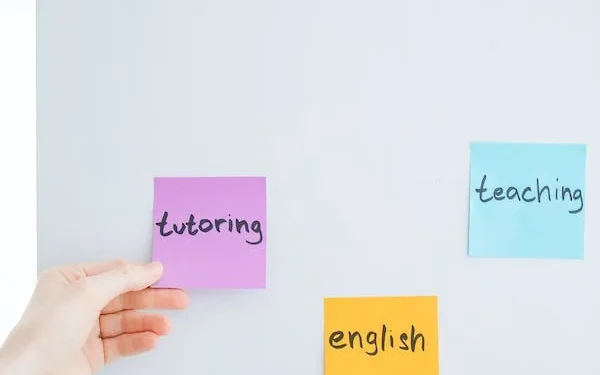 tutoring
teaching
english